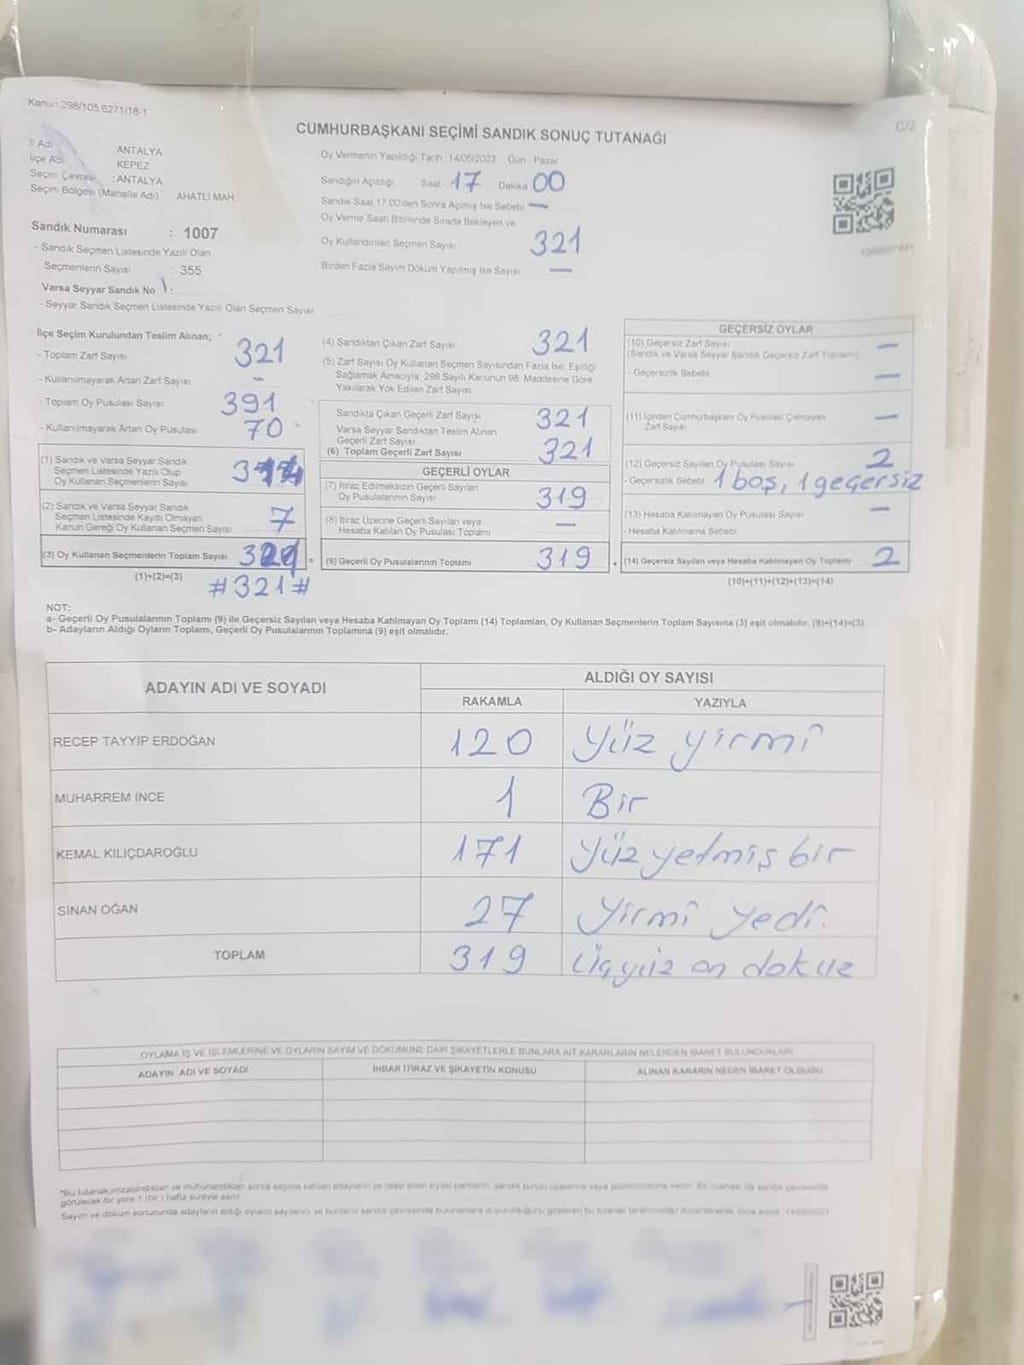 Kanun 298/105,6271/18-1
C/2
CUMHURBAŞKANI SEÇİMİ SANDIK SONUÇ TUTANAĞI
İl Adı ANTALYA
İlçe Adı KEPEZ
Seçim Çevresi : ANTALYA
Seçim Bölgesi (Mahalle Adı) AHATLI MAH.
Oy Vermenin Yapıldığı Tarih :14/05/2023 Gün Pazar
Sandığın Açıldığı Saat 17 Dakika 00
Sandık Saat 17:00'den Sonra Açılmış İse Sebebi —
Oy Verme Saati Bitiminde Sırada Bekleyen ve
Oy Kullandırılan Seçmen Sayısı 321
Birden Fazla Sayım Döküm Yapılmış İse Sayısı —
Sandık Numarası : 1007
- Sandık Seçmen Listesinde Yazılı Olan
Seçmenlerin Sayısı : 355
Varsa Seyyar Sandık No
- Seyyar Sandık Seçmen Listesinde Yazılı Olan Seçmen Sayısı
İlçe Seçim Kurulundan Teslim Alınan;
- Toplam Zarf Sayısı 321
- Kullanılmayarak Artan Zarf Sayısı –
- Toplam Oy Pusulası Sayısı 391
- Kullanılmayarak Artan Oy Pusulası 70
(1) Sandık ve Varsa Seyyar Sandık
Seçmen Listesinde Yazılı Olup
Oy Kullanan Seçmenlerin Sayısı
(2) Sandık ve Varsa Seyyar Sandık
Seçmen Listesinde Kayıtlı Olmayan
Kanun Gereği Oy Kullanan Seçmen Sayısı 7
(3) Oy Kullanan Seçmenlerin Toplam Sayısı
(1)+(2)=(3)
#321#
(4) Sandıktan Çıkan Zarf Sayısı 321
(5) Zarf Sayısı Oy Kullanan Seçmen Sayısından Fazla İse, Eşitliği
Sağlamak Amacıyla, 298 Sayılı Kanunun 98. Maddesine Göre
Yakılarak Yok Edilen Zarf Sayısı
Sandıkta Çıkan Geçerli Zarf Sayısı 321
Varsa Seyyar Sandıktan Teslim Alınan
Geçerli Zarf Sayısı
(6) Toplam Geçerli Zarf Sayısı 321
GEÇERLİ OYLAR
(7) İtiraz Edilmeksizin Geçerli Sayılan
Oy Pusulalarının Sayısı 319
(8) İtiraz Üzerine Geçerli Sayılan veya
Hesaba Katılan Oy Pusulası Toplamı —
(9) Geçerli Oy Pusulalarının Toplamı 319
GEÇERSİZ OYLAR
(10) Geçersiz Zarf Sayısı —
(Sandık ve Varsa Seyyar Sandık Geçersiz Zarf Toplamı)
- Geçersizlik Sebebi —
(11) İçinden Cumhurbaşkanı Oy Pusulası Çıkmayan
Zarf Sayısı —
(12) Geçersiz Sayılan Oy Pusulası Sayısı 2
- Geçersizlik Sebebi 1 boş, 1 geçersiz
(13) Hesaba Katılmayan Oy Pusulası Sayısı —
- Hesaba Katılmama Sebebi
(14) Geçersiz Sayılan veya Hesaba Katılmayan Oy Toplamı 2
(10)+(11)+(12)+(13)=(14)
NOT:
a- Geçerli Oy Pusulalarının Toplamı (9) ile Geçersiz Sayılan veya Hesaba Katılmayan Oy Toplamı (14) Toplamları, Oy Kullanan Seçmenlerin Toplam Sayısına (3) eşit olmalıdır. (9)+(14)=(3)
b- Adayların Aldığı Oyların Toplamı, Geçerli Oy Pusulalarının Toplamına (9) eşit olmalıdır.
ADAYIN ADI VE SOYADI ALDIĞI OY SAYISI
RAKAMLA YAZIYLA
RECEP TAYYİP ERDOĞAN 120 Yüz yirmi
MUHARREM İNCE 1 Bir
KEMAL KILIÇDAROĞLU 171 Yüz yetmiş bir
SİNAN OĞAN 27 Yirmi yedi.
TOPLAM 319 Üçyüz on dokuz
OYLAMA İŞ VE İŞLEMLERİNE VE OYLARIN SAYIM VE DÖKÜMÜNE DAİR ŞİKAYETLERLE BUNLARA AİT KARARLARIN NELERDEN İBARET BULUNDUKLARI
ADAYIN ADI VE SOYADI İHBAR İTİRAZ VE ŞİKAYETİN KONUSU ALINAN KARARIN NEDEN İBARET OLDUĞU
görülecek bir yere 1 (bir) hafta süreyle asılır